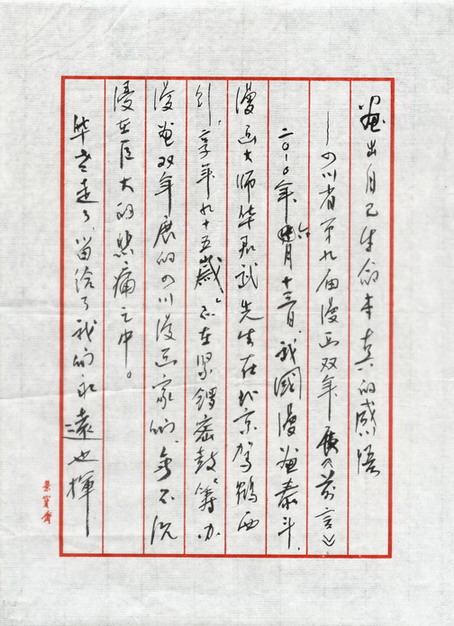 画出自己生命本真的感悟
——四川省第九届漫画双年展《前言》
二〇一〇年六月十三日,我國漫画泰斗、
漫画大师华君武先生在北京驾鹤西
行,享年九十五歲。正在紧锣密鼓筹办
漫画双年展的四川漫画家们,无不沉
浸在巨大的悲痛之中。
华老走了,留给了我们永遠也揮
荣宝斋